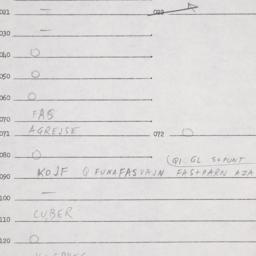 021 — 022
030 —
040 O
050 O
060 O
070 FAG
071 AGREJSE 072 O
080 O (QI GL S+PUNT
090 KOJF Q FUNAFASVAJN FAS+PARN AZA
100 —
110 LUBER
120 O